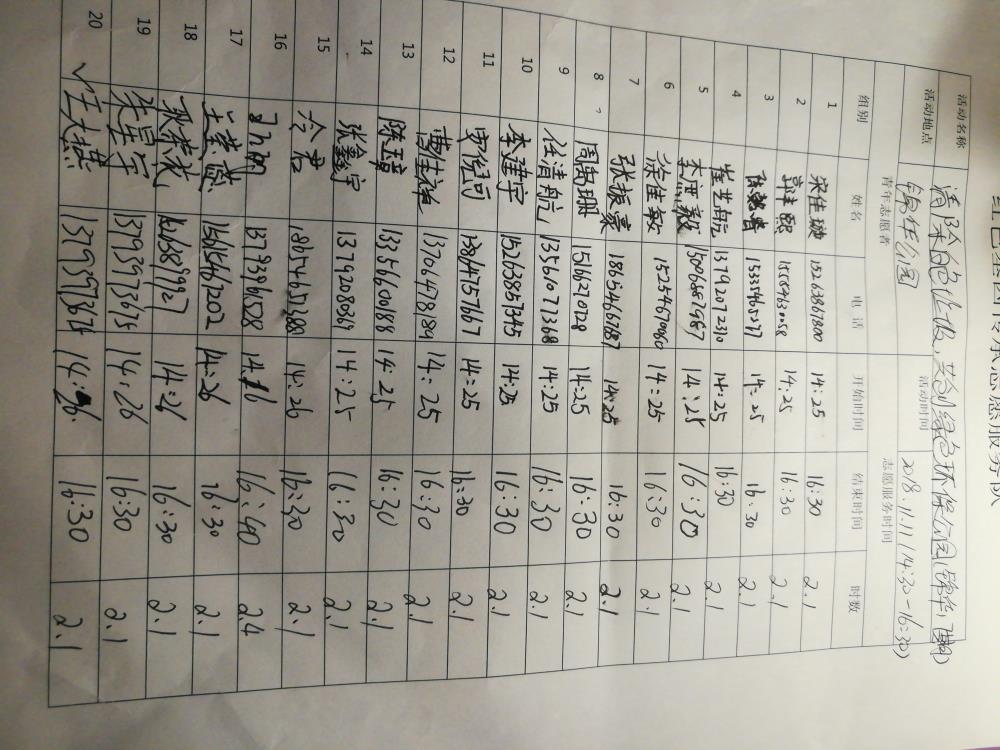 活动名称 清除白色垃圾,共创绿色环保公园(锦华
活动地点 锦华公园 活动时间 2018.11.11(14:30-16:30)
青年志愿者 志愿服务时间
组别 姓名 电话 开始时间 结束时间 时数
1 宋佳璇 15263867800 14:25 16:30 2.1
2 14:25 16:30 2.1
3 15335465377 14:25 16:30 2.1
4 崔芝航 13792072310 14:25 16:30 2.1
5 李亚毅 15096887987 14:25 16:30 2.1
6 徐佳敏 15254670060 14:25 16:30 2.1
7 张振豪 18654667187 14:25 16:30 2.1
8 周禹珊 15166270728 14:25 16:30 2.1
9 任清航 13561071368 14:25 16:30 2.1
10 李建宇 15263857345 14:25 16:30 2.1
11 13864757667 14:25 16:30 2.1
12 曹佳祥 13706478189 14:25 16:30 2.1
13 陈璋 13356600188 14:25 16:30 2.1
14 张鑫宇 13792088369 14:25 16:30 2.1
15 冷君 18654653188 14:26 16:30 2.1
16 13793961528 14:16 16:40 2.4
17 15615467202 14:26 16:30 2.1
18 14:26 16:30 2.1
19 朱星宇 13793973675 14:26 16:30 2.1
20 13793973675 14:26 16:30 2.1